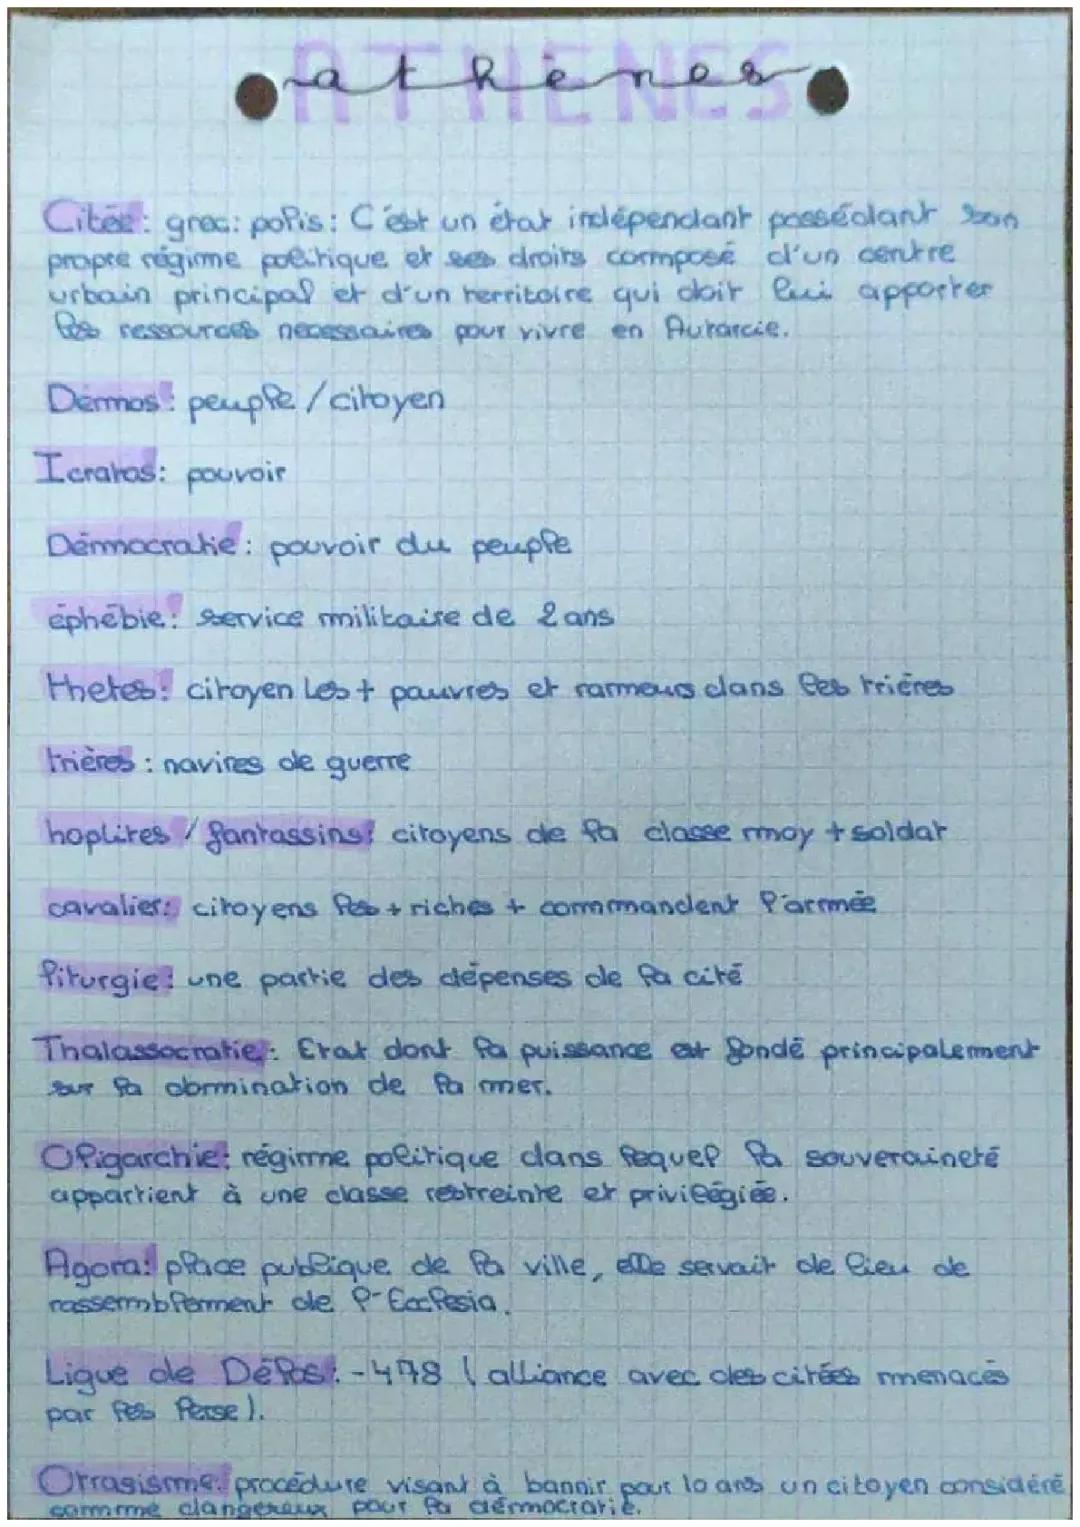 ATHENES
athènes
Citée : grec: polis : C'est un état indépendant possédant son
propre régime politique et ses droits composé d'un centre
urbain principal et d'un territoire qui doit lui apporter
les ressources necessaires pour vivre en Autarcie.
Démos : peuple / citoyen
Icratos : pouvoir
Démocratie : pouvoir du peuple
éphébie : service militaire de 2 ans
thetes : citoyen les + pauvres et rameurs dans les trières
trières : navires de guerre
hoplites / fantassins : citoyens de la classe moy + soldat
cavalier : citoyens les + riches + commandent l'armée
liturgie : une partie des dépenses de la cité
Thalassocratie : Etat dont la puissance est fondé principalement
sur la domination de la mer.
Oligarchie : régime politique dans lequel la souveraineté
appartient à une classe restreinte et privilégiée.
Agora : place publique de la ville, elle servait de lieu de
rassemblement de l'Ecclesia.
Ligue de Délos : -478 ( alliance avec des citées menacés
par les Perse ).
Otrasisme : procédure visant à bannir pour 10 ans un citoyen considéré
comme dangereux pour la démocratie.